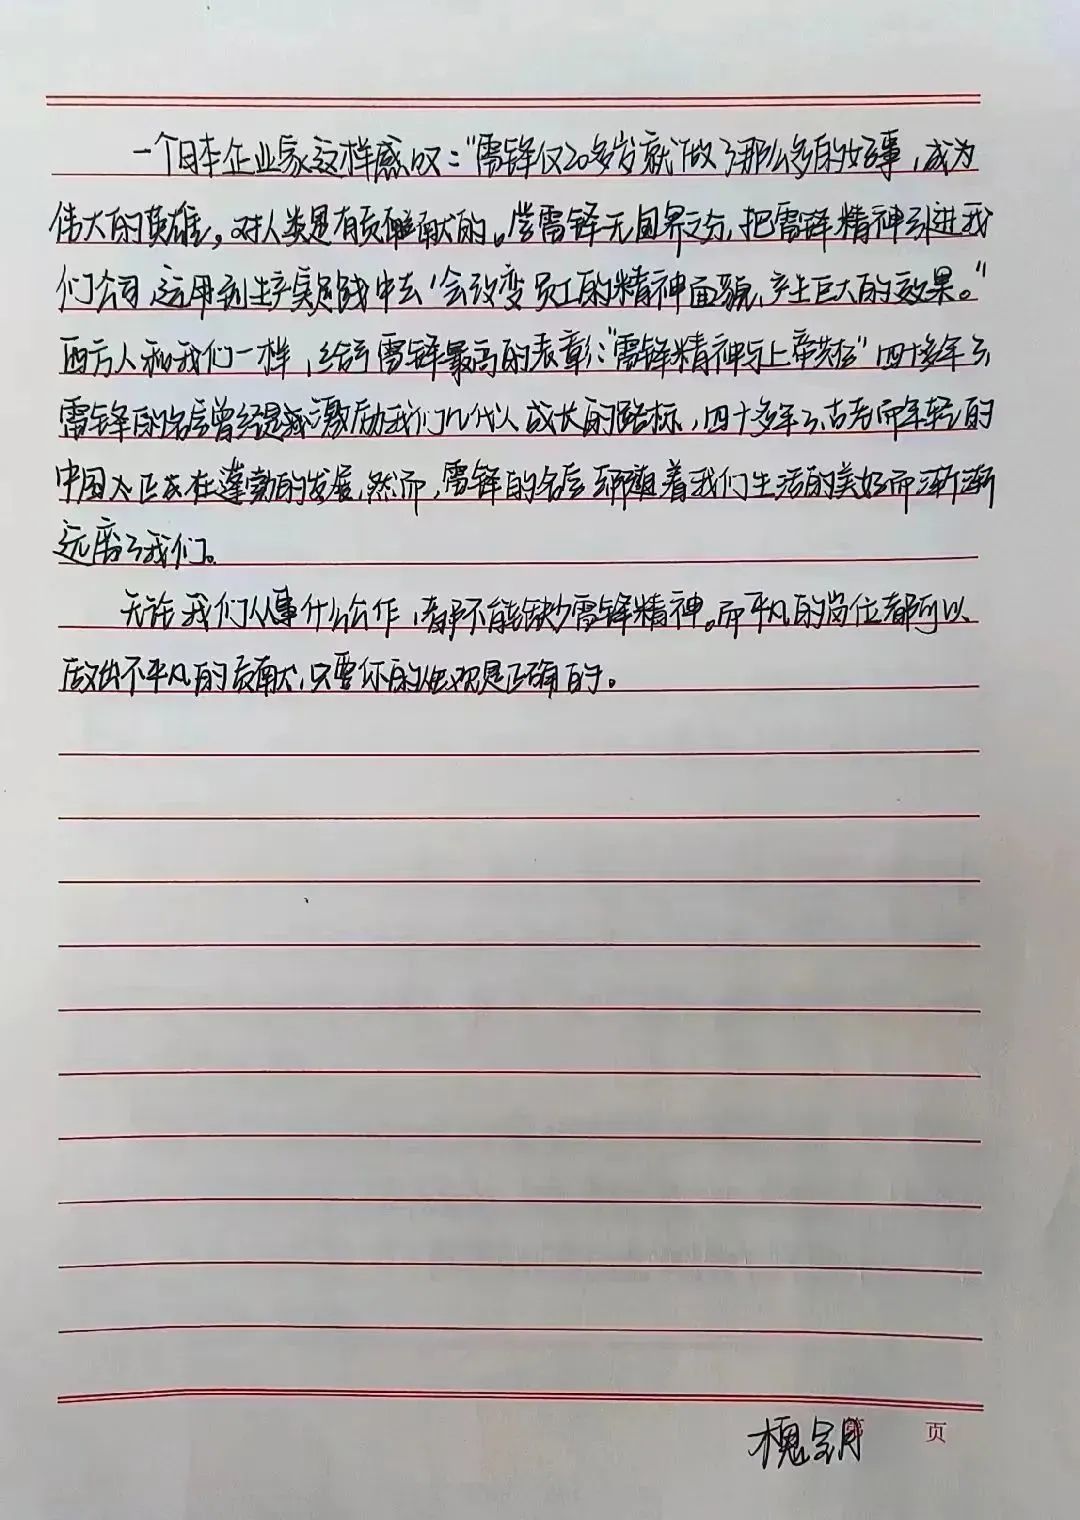 一个日本企业家这样感叹："雷锋仅20多岁就做了那么多的好事，成为
伟大的英雄，对人类是有贡献的。学雷锋无国界之分，把雷锋精神引进我
们公司，运用到生产实践中去，会改变员工的精神面貌，产生巨大的效果。"
西方人和我们一样，给予雷锋最高的表彰："雷锋精神与上帝共在"四十多年了
雷锋的名字曾经是激励我们几代人成长的路标，四十多年了，古老而年轻的
中国也正在蓬勃的发展，然而，雷锋的名字却随着我们生活的美好而渐渐
远离了我们。
无论我们从事什么工作，都不能缺少雷锋精神。而平凡的岗位都可以
做出不平凡的贡献，只要你的观是正确的。
第 页